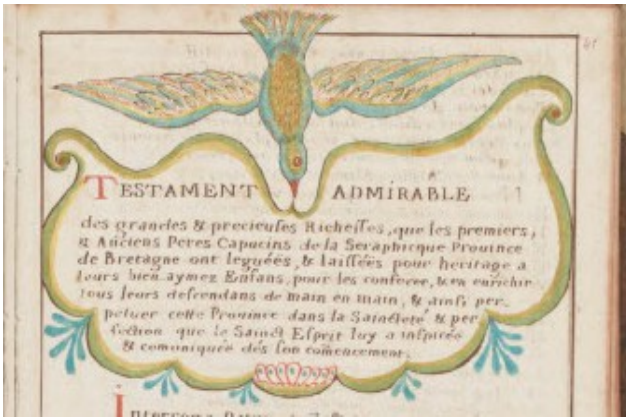 41
TESTAMENT ADMIRABLE
des grandes & precieuses Richesses, que les premiers,
& Anciens Peres Capucins de la Seraphicque Prouince
de Bretagne ont leguéés, & laissées pour heritage a
leurs bien aymez Enfans, pour les conferer, & en enrichir
tous leurs descendans de main en main, & ainsi per-
petuer cette Prouince dans la Saincteté & per
fection que le Sainct Esprit luy a inspirée
& comuniquée dés son comencement.